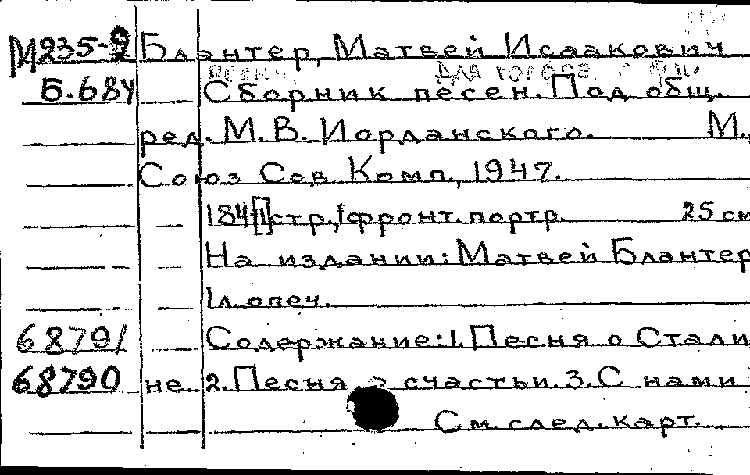 М235-9 Блантер, Матвей Исаакович
Б.684 Сборник песен. Под общ.
ред. М.В. Иорданского. М.,
Союз Сов Комп., 1947.
184[1]стр., 1фронт. портр. 25 см
На издании: Матвей Блантер
1л. опеч.
68791 Содержание: 1. Песня о Стали
68790 не. 2. Песня о счастьи. 3. С нами
См. след. карт.